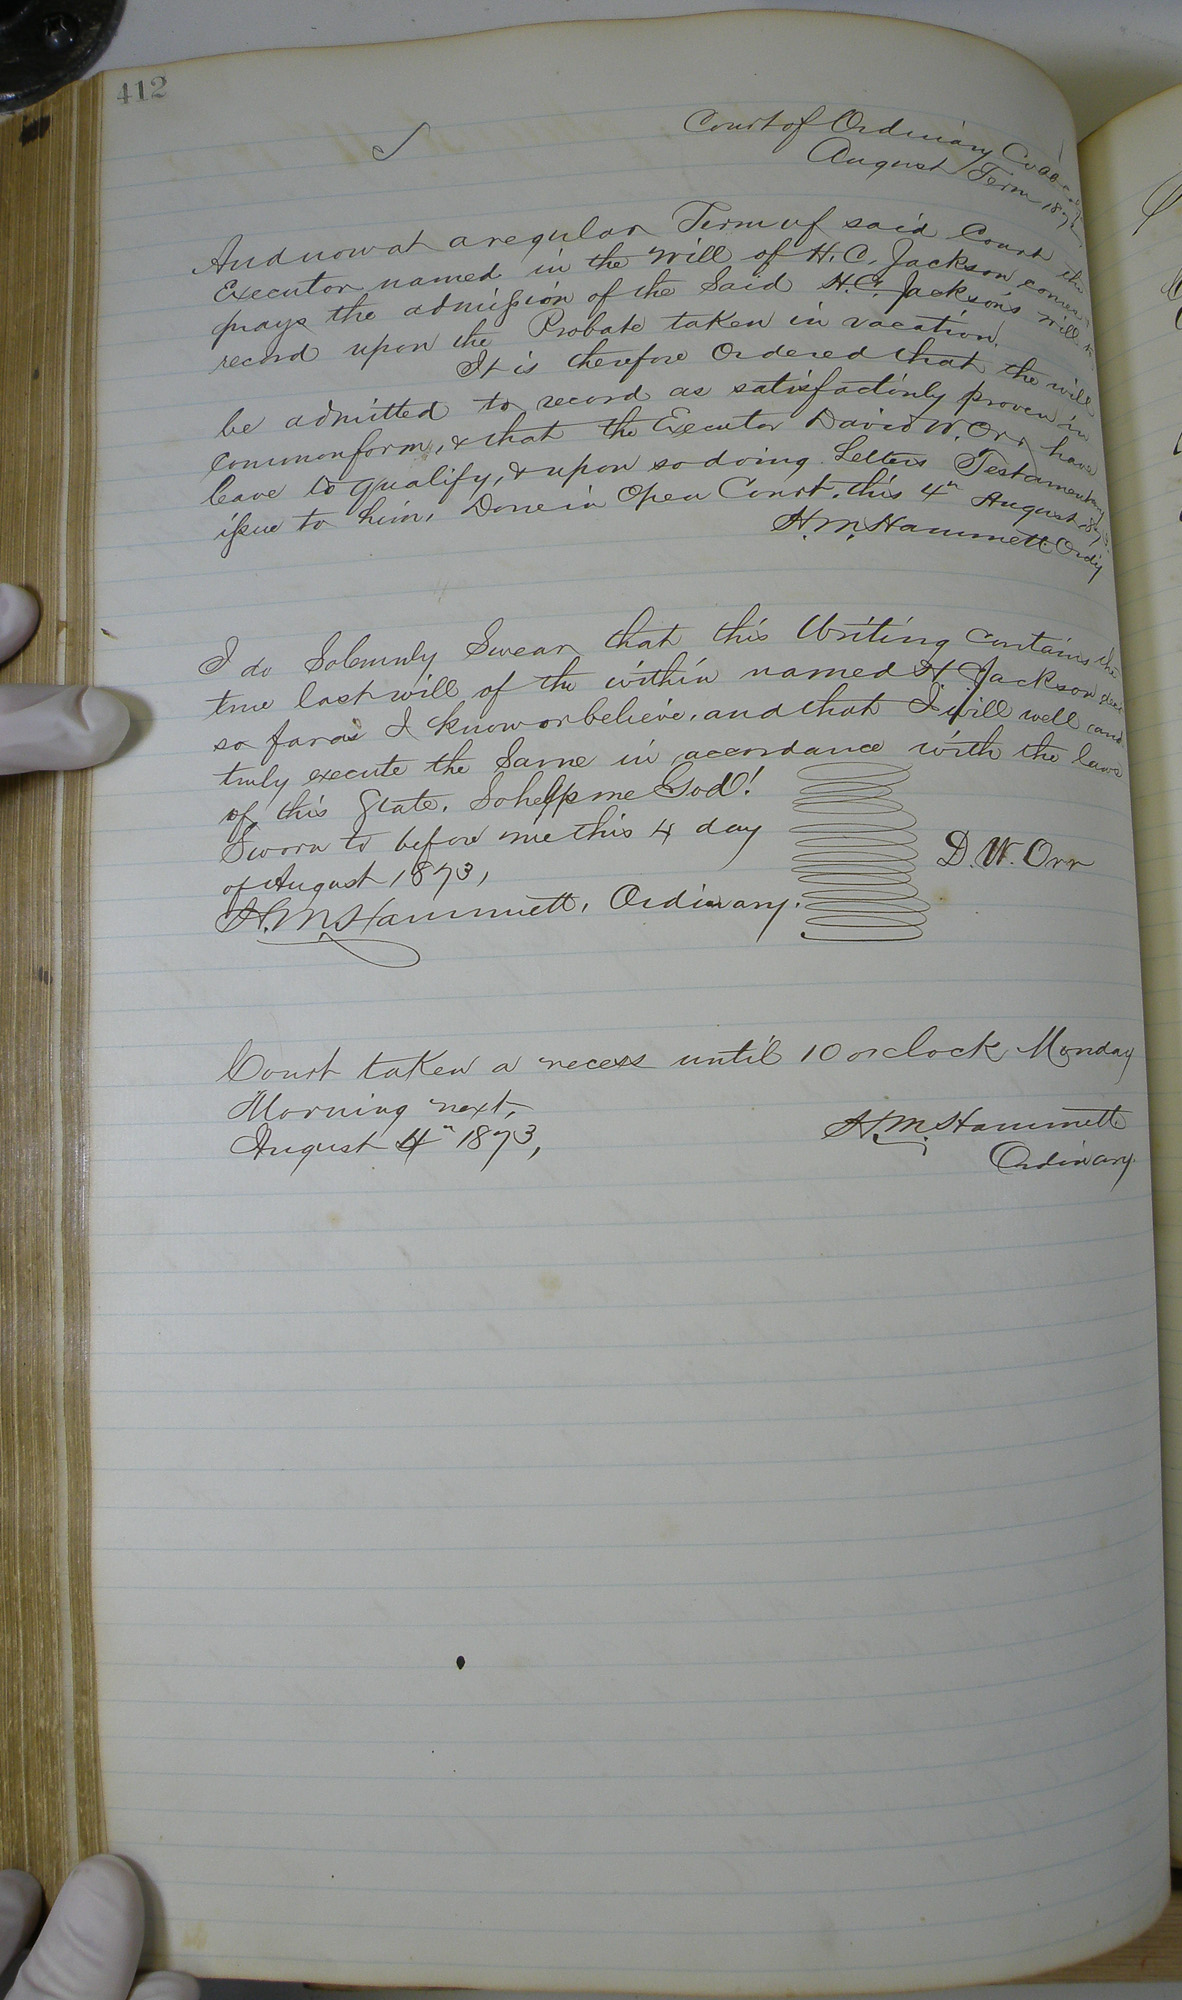 412
Court of Ordinary
August Term
And now at a regular Term of said Court the
Executor named in the will of H. C. Jackson comes &
prays the admission of the Said H. C. Jacksons will to
record upon the Probate taken in vacation.
It is therefore Ordered that the will
be admitted to record as satisfactirily proven in
common form, & that the Executor David W. Orr have
leave to qualify, & upon so doing Letters Testamentary
issue to him, Done in Open Court, this 4th August 1873.
H. M. Hammett Ordy
I do Solemnly Swear that this Writing contains the
true last will of the within named H Jackson decd
so far as I know or believe, and that I will well and
truly execute the Same in accordance with the laws
of this State. So help me God!
Sworn to before me this 4 day
of August 1873,
D. W. Orr
H. M. Hammett, Ordinary.
Court taken a recess until 10 oclock Monday
Morning next,
August 4th 1873,
H. M. Hammett
Ordinary.